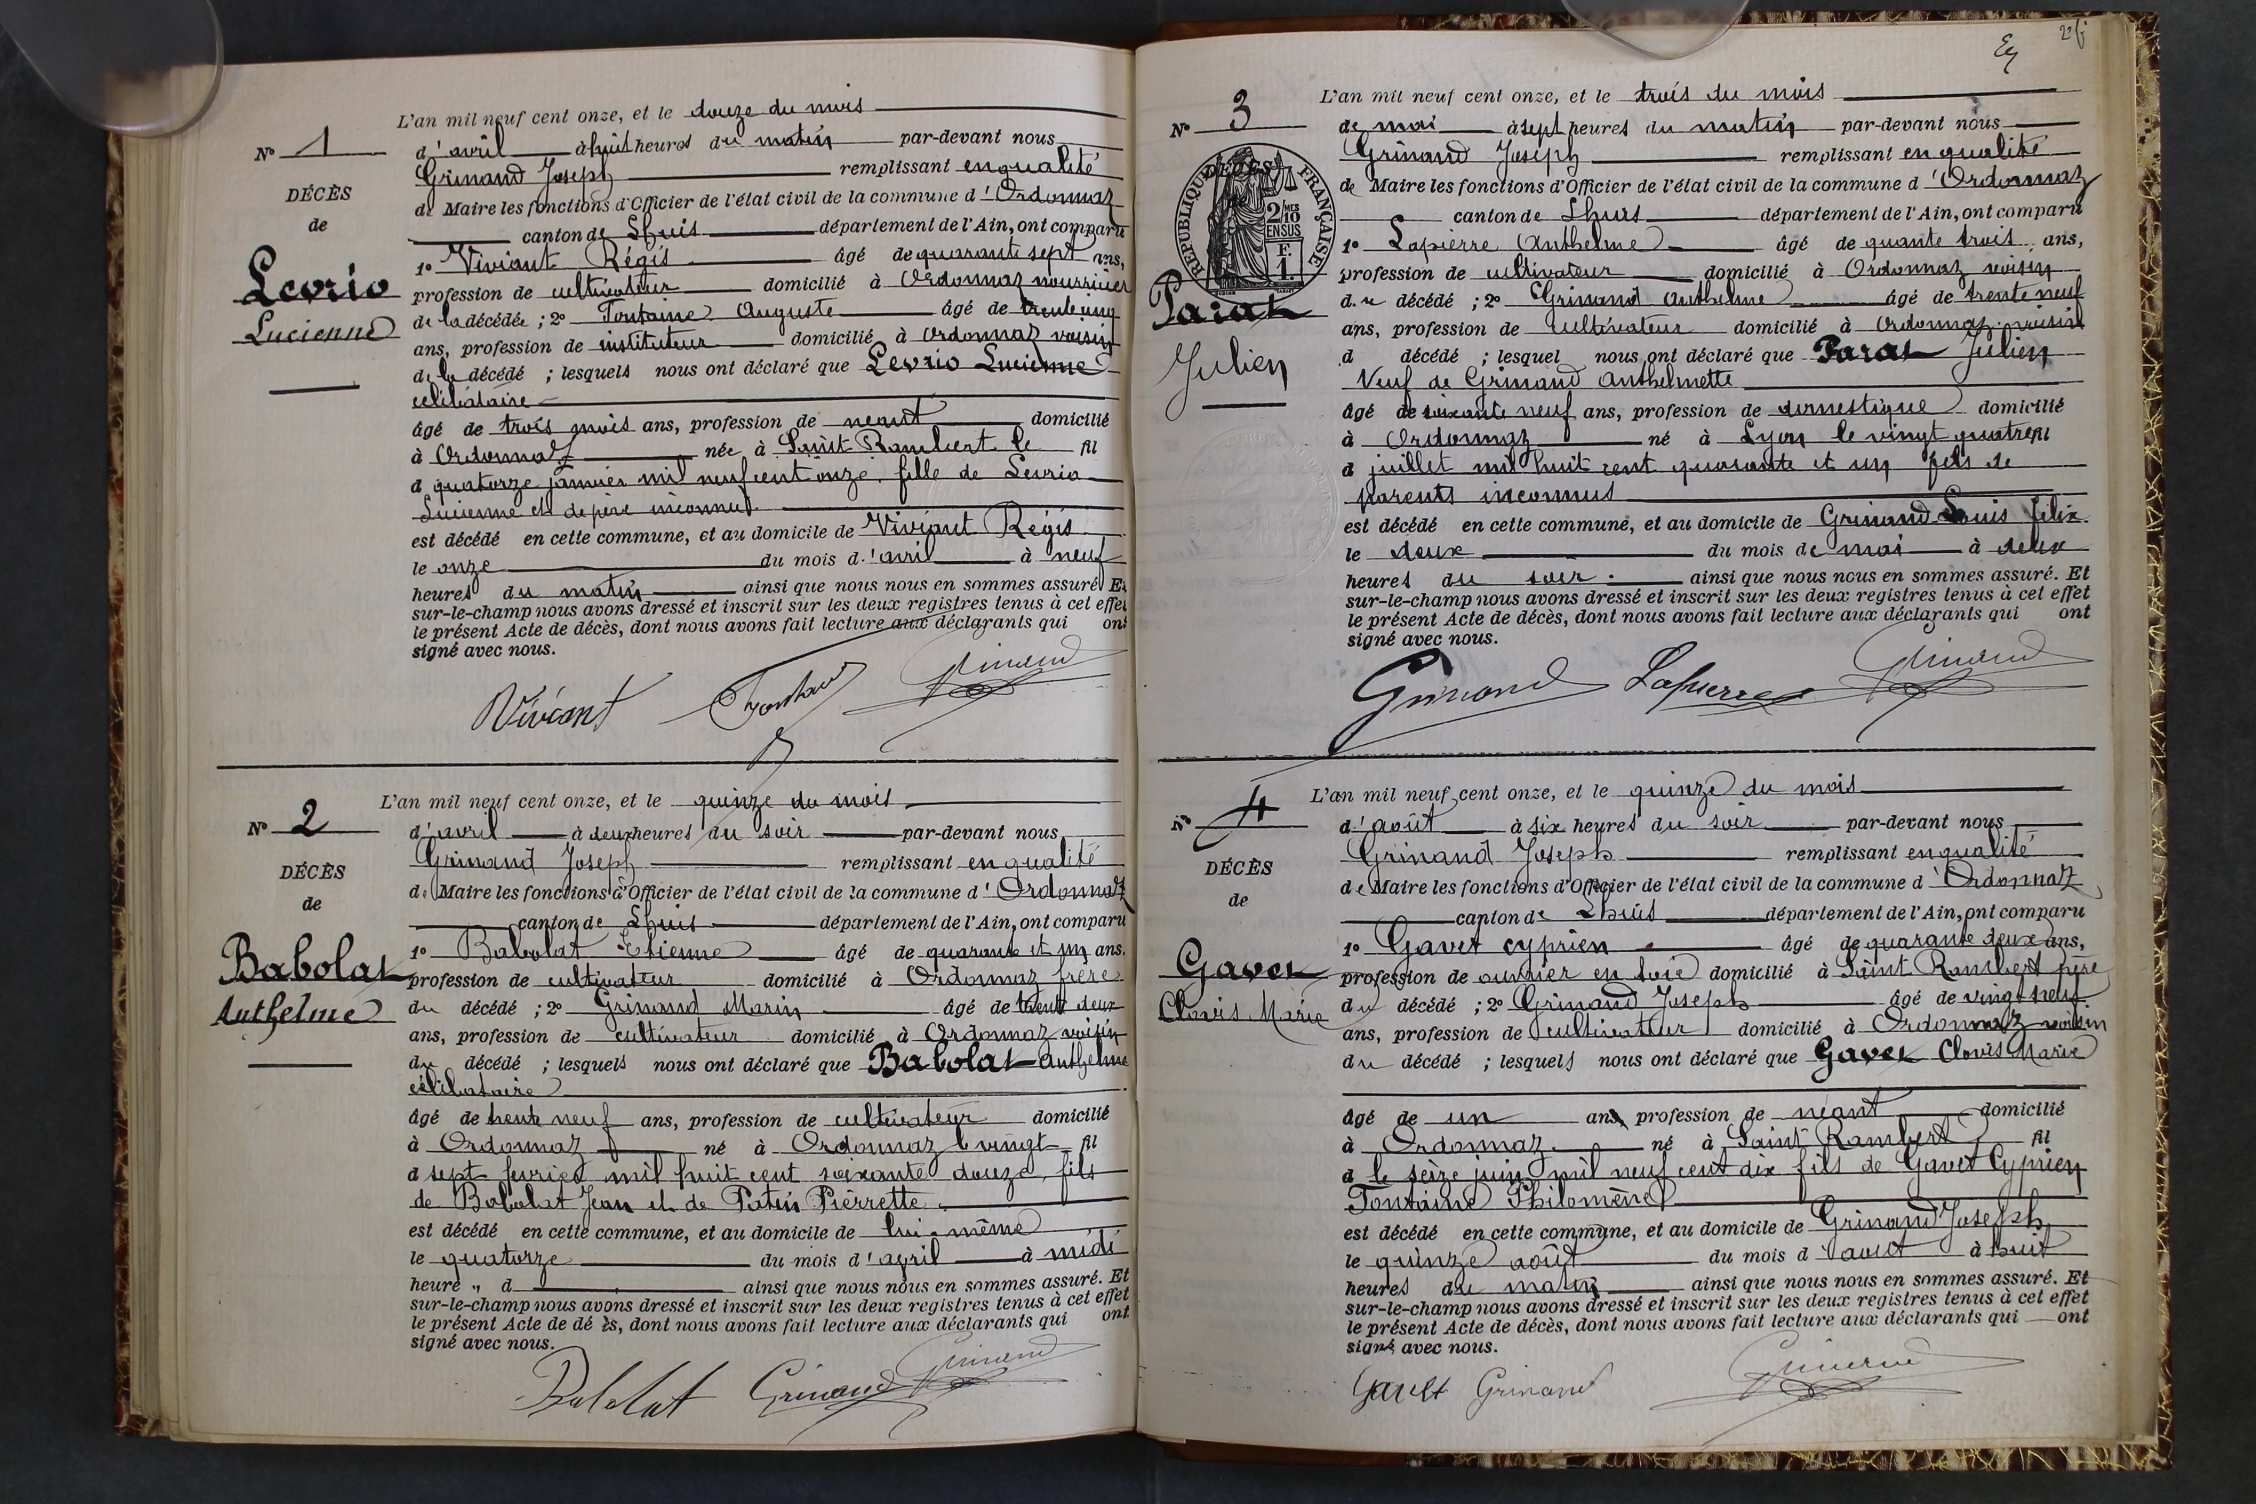 L'an mil neuf cent onze, et le douze du mois
Nº 1
d'avril à huit heures du matin par-devant nous
Grinand Joseph remplissant en qualité
DÉCÈS
de Maire les fonctions d'Officier de l'état civil de la commune d'Ordonnaz
de
canton de Lhuis département de l'Ain, ont comparu
1º Viviant Régis âgé de quarante sept ans,
Levrio
profession de cultivateur domicilié à Ordonnaz nourricier
Lucienne
de la décédée ; 2º Fontaine Auguste âgé de trente cinq
ans, profession de instituteur domicilié à Ordonnaz voisin
de la décédé ; lesquels nous ont déclaré que Levrio Lucienne
célibataire
âgé de trois mois ans, profession de néant domicilié
à Ordonnaz née à Saint Rambert le fil
d quatorze janvier mil neuf cent onze, fille de Levrio
Lucienne et de père inconnu
est décédé en cette commune, et au domicile de Viviant Régis
le onze du mois d'avril à neuf
heures du matin ainsi que nous nous en sommes assuré Et
sur-le-champ nous avons dressé et inscrit sur les deux registres tenus à cet effet
le présent Acte de décès, dont nous avons fait lecture aux déclarants qui ont
signé avec nous.
Viviant Grinand
L'an mil neuf cent onze, et le quinze du mois
Nº 2
d'avril à deux heures du soir par-devant nous
Grinand Joseph remplissant en qualité
DÉCÈS
de Maire les fonctions d'Officier de l'état civil de la commune d'Ordonnaz
de
canton de Lhuis département de l'Ain, ont comparu
Babolat
1º Babolat Etienne âgé de quarante et un ans.
profession de cultivateur domicilié à Ordonnaz frère
Anthelme
du décédé ; 2º Grinand Marin âgé de trente deux
ans, profession de cultivateur domicilié à Ordonnaz voisin
du décédé ; lesquels nous ont déclaré que Babolat Anthelme
célibataire
âgé de trente neuf ans, profession de cultivateur domicilié
à Ordonnaz né à Ordonnaz le vingt fil
d sept fevrier mil huit cent soixante douze, fils
de Babolat Jean et de Patin Pièrrette
est décédé en cette commune, et au domicile de lui-même
le quatorze du mois d'avril à midi
heure „ d ainsi que nous nous en sommes assuré. Et
sur-le-champ nous avons dressé et inscrit sur les deux registres tenus à cet effet
le présent Acte de dé ès, dont nous avons fait lecture aux déclarants qui ont
signé avec nous.
Babolat Grinand Grinand
L'an mil neuf cent onze, et le trois du mois
Nº 3
de mai à sept heures du matin par-devant nous
Grinand Joseph remplissant en qualité
DÉCÈS
RÉPUBLIQUE FRANÇAISE
2/10 MES
EN SUS
F.
1.
de Maire les fonctions d'Officier de l'état civil de la commune d'Ordonnaz
canton de Lhuis département de l'Ain, ont comparu
1º Lapierre Anthelme âgé de quante trois ans,
profession de cultivateur domicilié à Ordonnaz voisin
Parat
du décédé ; 2º Grinand Anthelme âgé de trente neuf
ans, profession de cultivateur domicilié à Ordonnaz voisin
Julien
d décédé ; lesquel nous ont déclaré que Parat Julien
Veuf de Grinand Anthelmette
âgé de soixante neuf ans, profession de domestique domicilié
à Ordonnaz né à Lyon le vingt quatre fil
d juillet mil huit cent quarante et un fils de
parents inconnus
est décédé en cette commune, et au domicile de Grinand Louis félix
le deux du mois de mai à deux
heures du soir. ainsi que nous nous en sommes assuré. Et
sur-le-champ nous avons dressé et inscrit sur les deux registres tenus à cet effet
le présent Acte de décès, dont nous avons fait lecture aux déclarants qui ont
signé avec nous.
Grinand Lapierre Grinand
L'an mil neuf cent onze, et le quinze du mois
Nº 4
d'août à six heures du soir par-devant nous
Grinand Joseph remplissant en qualité
DÉCÈS
de Maire les fonctions d'Officier de l'état civil de la commune d'Ordonnaz
de
canton de Lhuis département de l'Ain, ont comparu
1º Gavet cyprien âgé de quarante deux ans,
Gavet
profession de ouvrier en soie domicilié à Saint Rambert père
Clovis Marie
du décédé ; 2º Grinand Joseph âgé de vingt neuf
ans, profession de cultivateur domicilié à Ordonnaz voisin
du décédé ; lesquels nous ont déclaré que Gavet Clovis Marie
âgé de un ans profession de néant domicilié
à Ordonnaz né à Saint Rambert fil
d le seize juin mil neuf cent dix fils de Gavet Cyprien
Fontaine Philomène
est décédé en cette commune, et au domicile de Grinand Joseph
le quinze août du mois d'aout à huit
heures du matin ainsi que nous nous en sommes assuré. Et
sur-le-champ nous avons dressé et inscrit sur les deux registres tenus à cet effet
le présent Acte de décès, dont nous avons fait lecture aux déclarants qui ont
signé avec nous.
Gavet Grinand Grinand